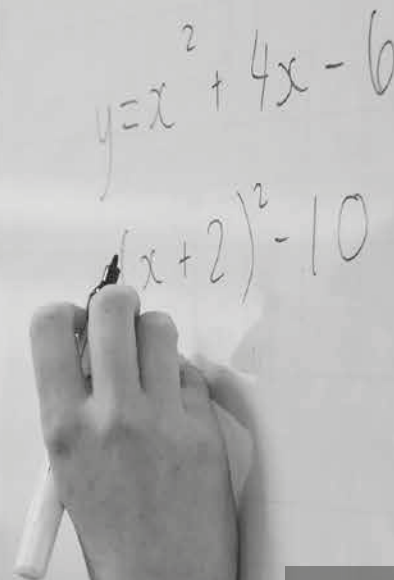 y=x² + 4x - 6
(x+2)² - 10